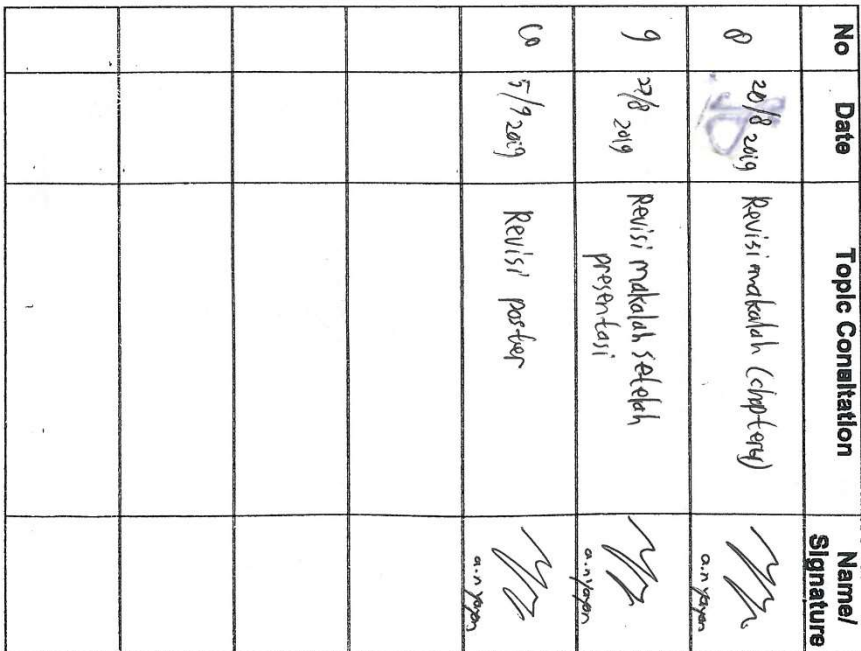 No Date Topic Consltation Name/
Signature
8 20/8 2019 Revisi makalah (chapter 4)
a.n yayan
9 27/8 2019 Revisi makalah setelah
presentasi
a.n yayan
10 5/9 2019 Revisi poster
a.n yayan